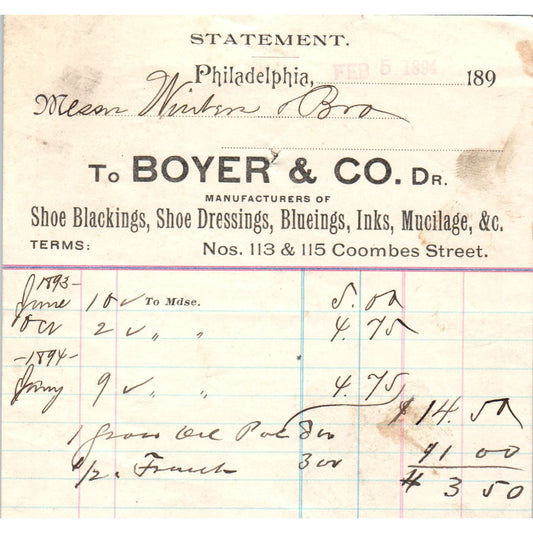 STATEMENT.
Philadelphia, FEB 5 1894 189
Messrs Winters & Bro
To BOYER & CO. DR.
MANUFACTURERS OF
Shoe Blackings, Shoe Dressings, Blueings, Inks, Mucilage, &c.
TERMS: Nos. 113 & 115 Coombes Street.
1893
June 10 To Mdse. 5.00
Oct 2 " " 4.75
-1894-
Jany 9 " " 4.75 $14.50
1 gross Oil Pol 800 11 00
1/2 " French 300 $ 3 50